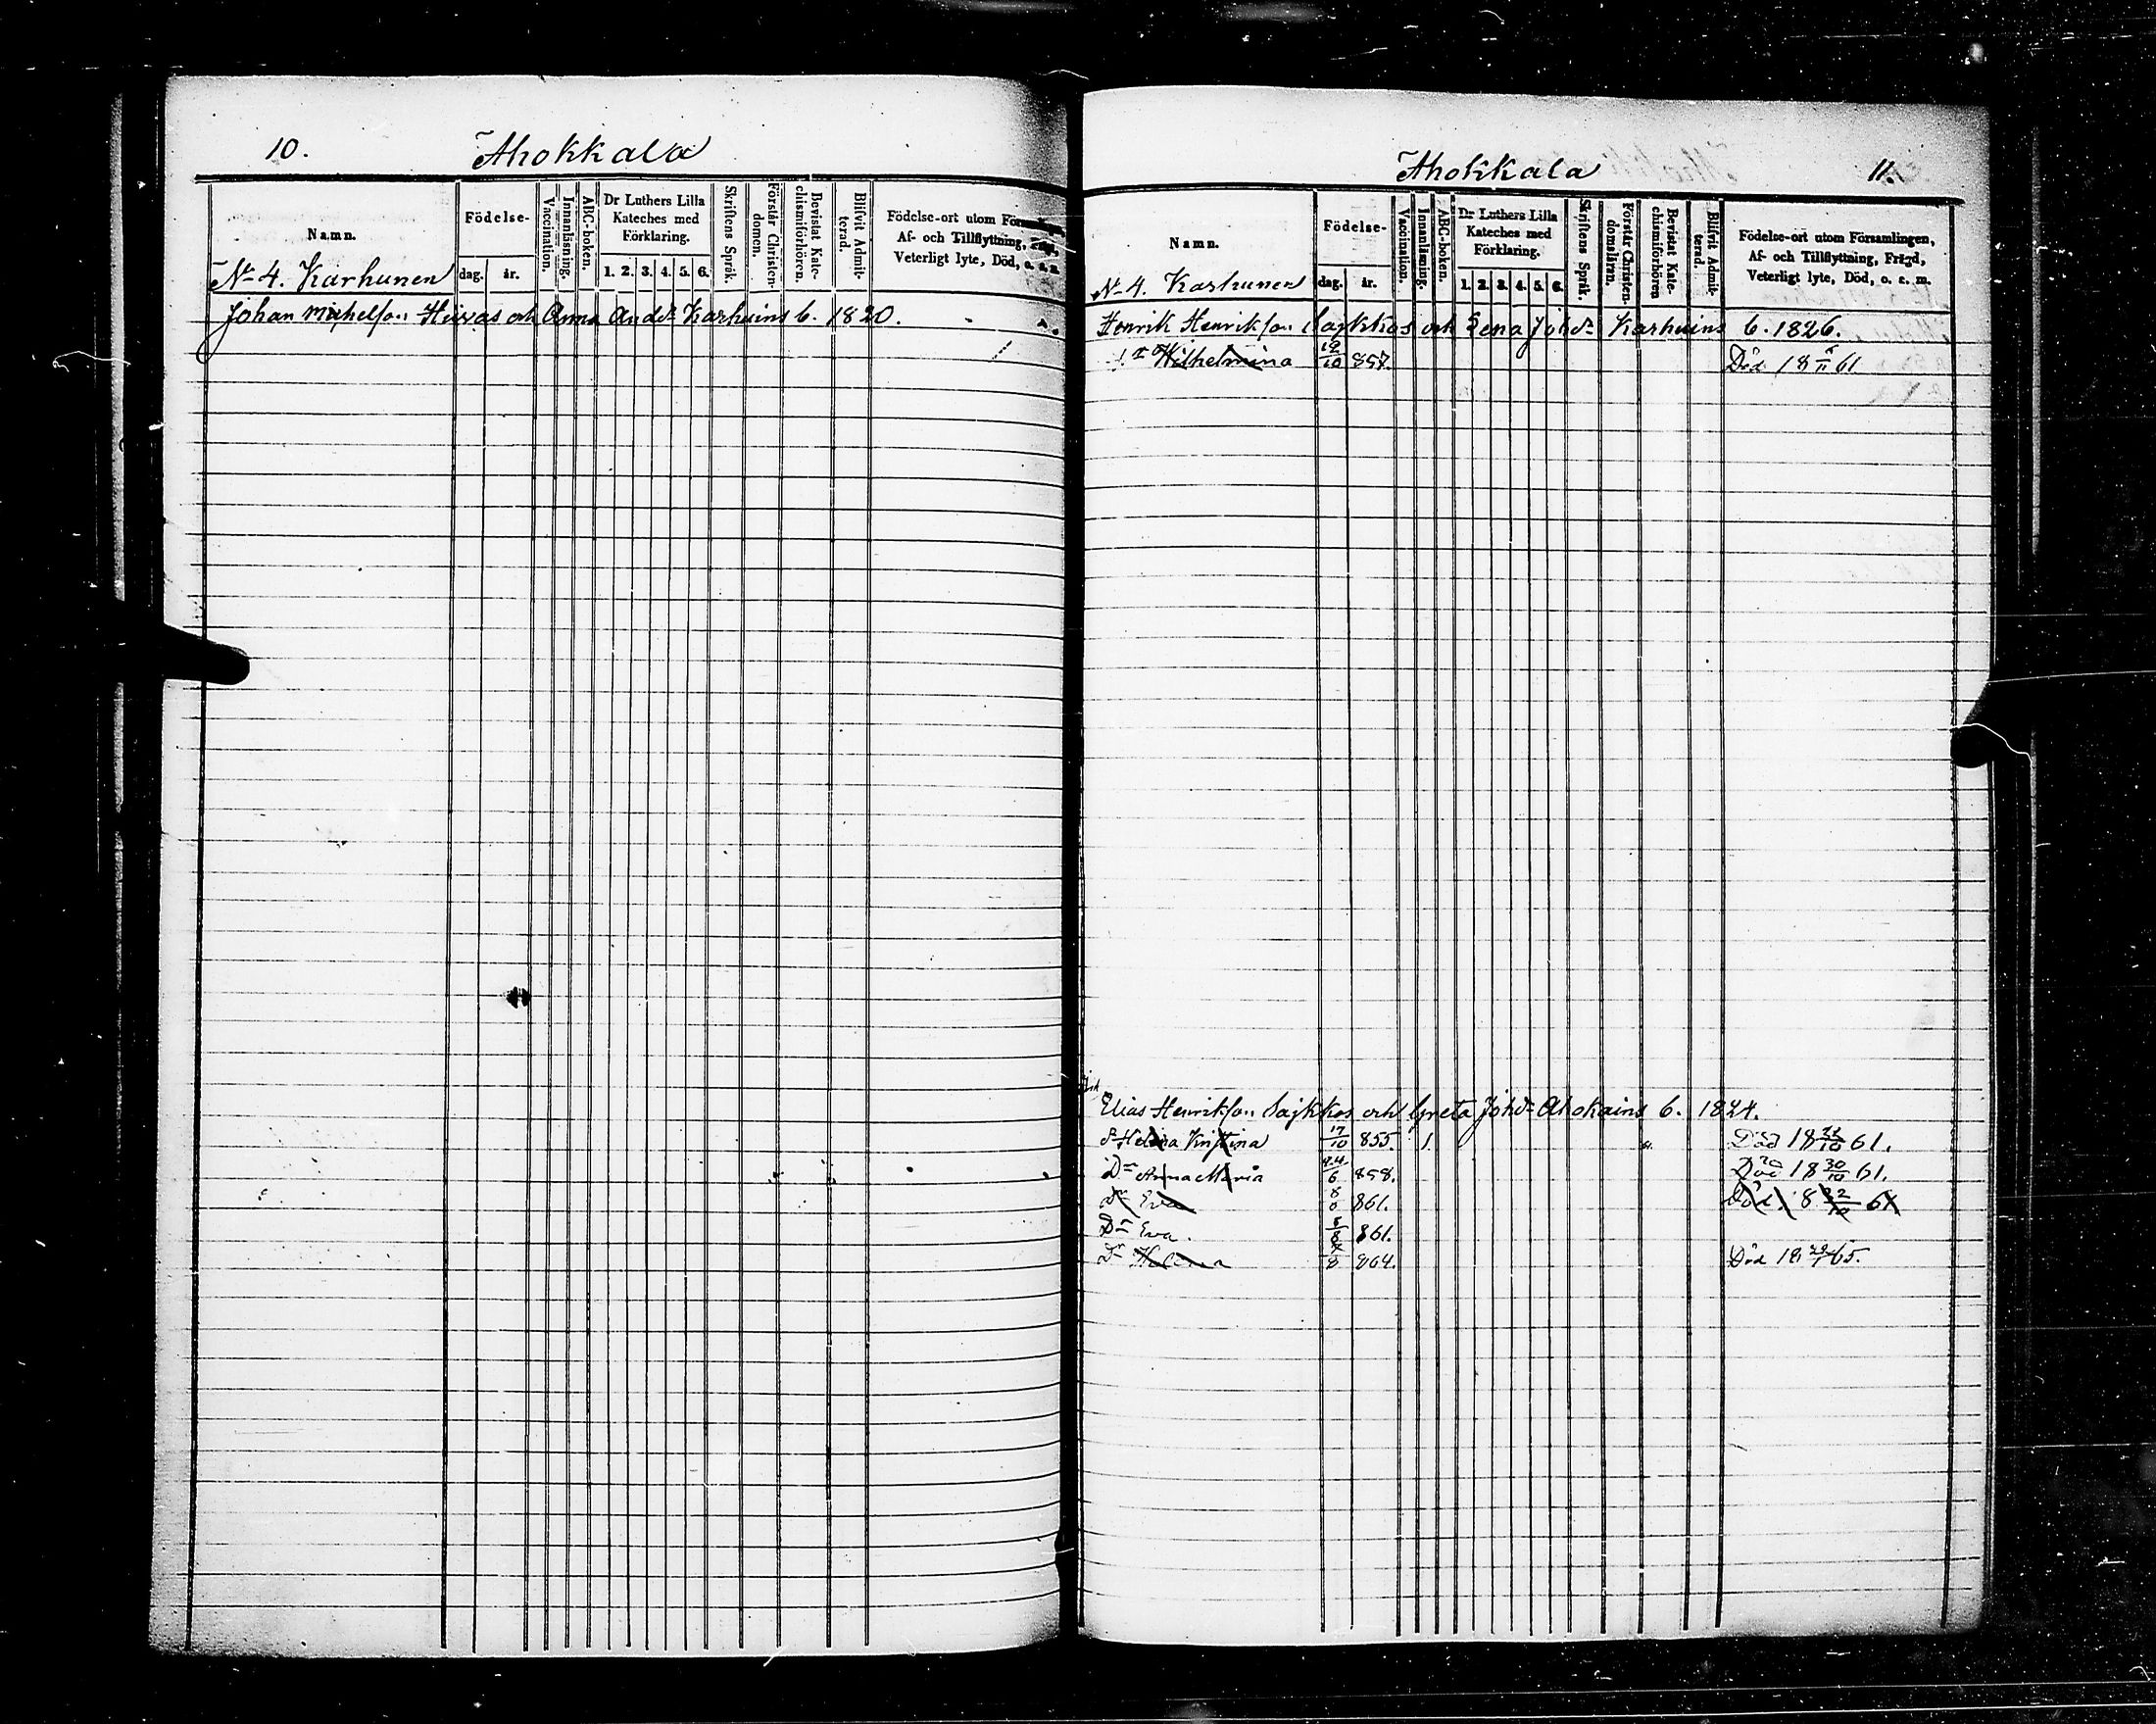 10. Ahokkala
Namn.
Födelse-
dag. år.
Vaccination.
Innanläsning.
ABC-boken.
Dr Luthers Lilla Kateches med Förklaring.
1. 2. 3. 4. 5. 6.
Skriftens Språk.
Förstår Christendomen.
Bevistat Katechismiförhören.
Blifvit Admitterad.
Födelse-ort utom
Af- och Tillflyttning,
Veterligt lyte, Död, o. s. m.
No 4. Karhunen
Johan Michelson och Anna Andd:r Karhuins b. 1820.
Ahokkala 11.
Namn.
Födelse-
dag. år.
Vaccination.
Innanläsning.
ABC-boken.
Dr Luthers Lilla Kateches med Förklaring.
1. 2. 3. 4. 5. 6.
Skriftens Språk.
Förstår Christendomsläran.
Bevistat Katechismiförhören
Blifvit Admitterad.
Födelse-ort utom Församlingen,
Af- och Tillflyttning, Frägd,
Veterligt lyte, Död, o. s. m.
No 4. Karhunen
Henrik Henrikson Sajkkos och Lena Johd:r Karhuins b. 1826.
Wilhelmina 19/10 857. Död 18 6/11 61
Elias Henrikson Sajkkos och Greta Johd:r Ahokains b. 1824.
Helena Kristina 17/10 855. 1. Död 18 /10 61.
D:r Anna Maria 24/6 858. Död 18 30/10 61.
D:r Eva 8/8 861. Död 18 22/10 61
D:r Eva. 8/8 861.
D:r Helena /8 864. Död 18 65.